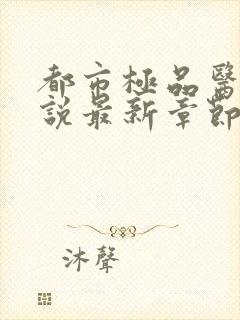 都市極品醫
說最新章節
沐聲